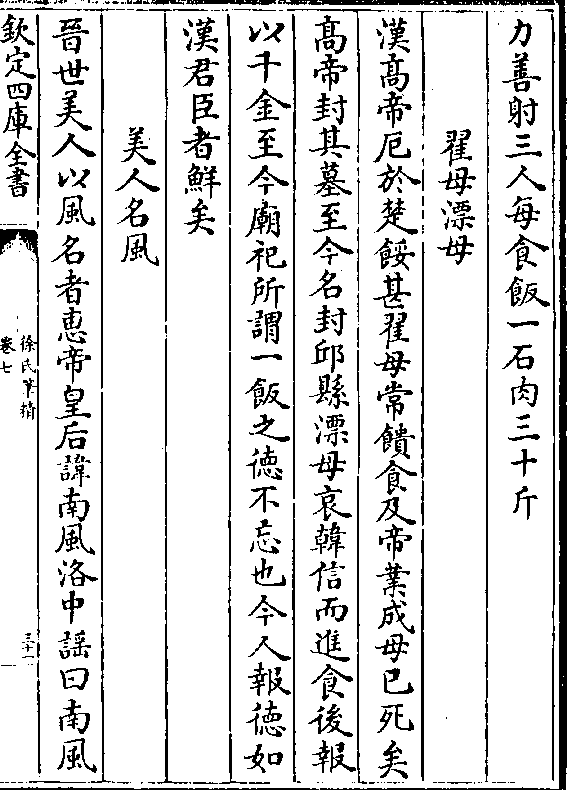 力善射三人每食飯一石肉三十斤
翟母漂母
漢髙帝厄於楚餒甚翟母常饋食及帝業成母已死矣
髙帝封其墓至今名封邱縣漂母哀韓信而進食後報
以千金至今廟祀所謂一飯之徳不忘也今人報徳如
漢君臣者鮮矣
美人名風
晉世美人以風名者惠帝皇后諱南風洛中謡曰南風
欽定四庫全書
徐氏筆精
卷七
三十一